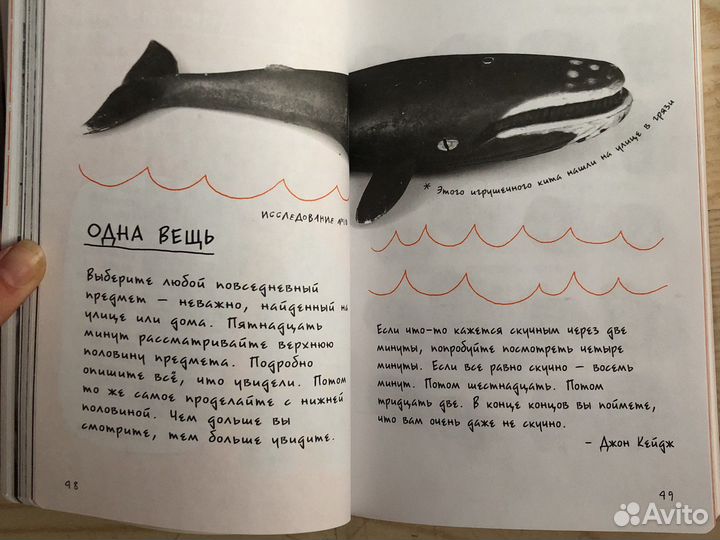 ИССЛЕДОВАНИЕ
ОДНА ВЕЩЬ
Выберите любой повседневный
предмет — неважно, найденный на
улице или дома. Пятнадцать
минут рассматривайте верхнюю
половину предмета. Подробно
опишите всё, что увидели. Потом
то же самое проделайте с нижней
половиной. Чем дольше вы
смотрите, тем больше увидите.
48
* Этого игрушечного кита нашли на улице в грязи
Если что-то кажется скучным через две
минуты, попробуйте посмотреть четыре
минуты. Если все равно скучно — восемь
минут. Потом шестнадцать. Потом
тридцать две. В конце концов вы поймете,
что вам очень даже не скучно.
— Джон Кейдж
49
Avito